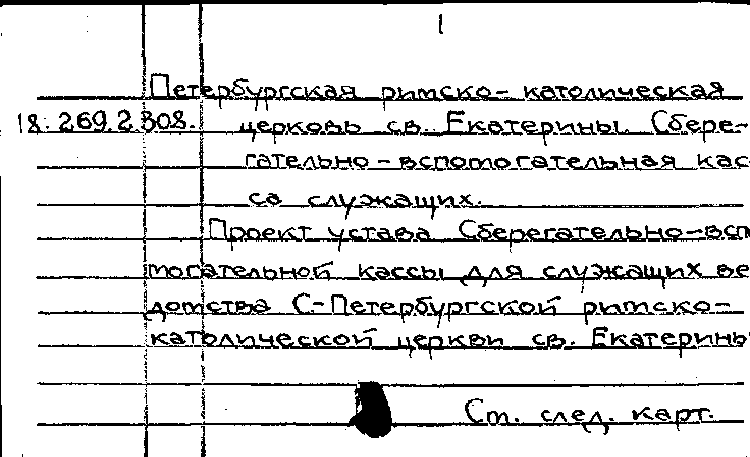 1
Петербургская римско-католическая
18.269.2.308. церковь св. Екатерины. Сбере-
гательно-вспомогательная кас-
са служащих.
Проект устава Сберегательно-всп
могательной кассы для служащих ве
домства С-Петербургской римско-
католической церкви св. Екатерины
См. след. карт.